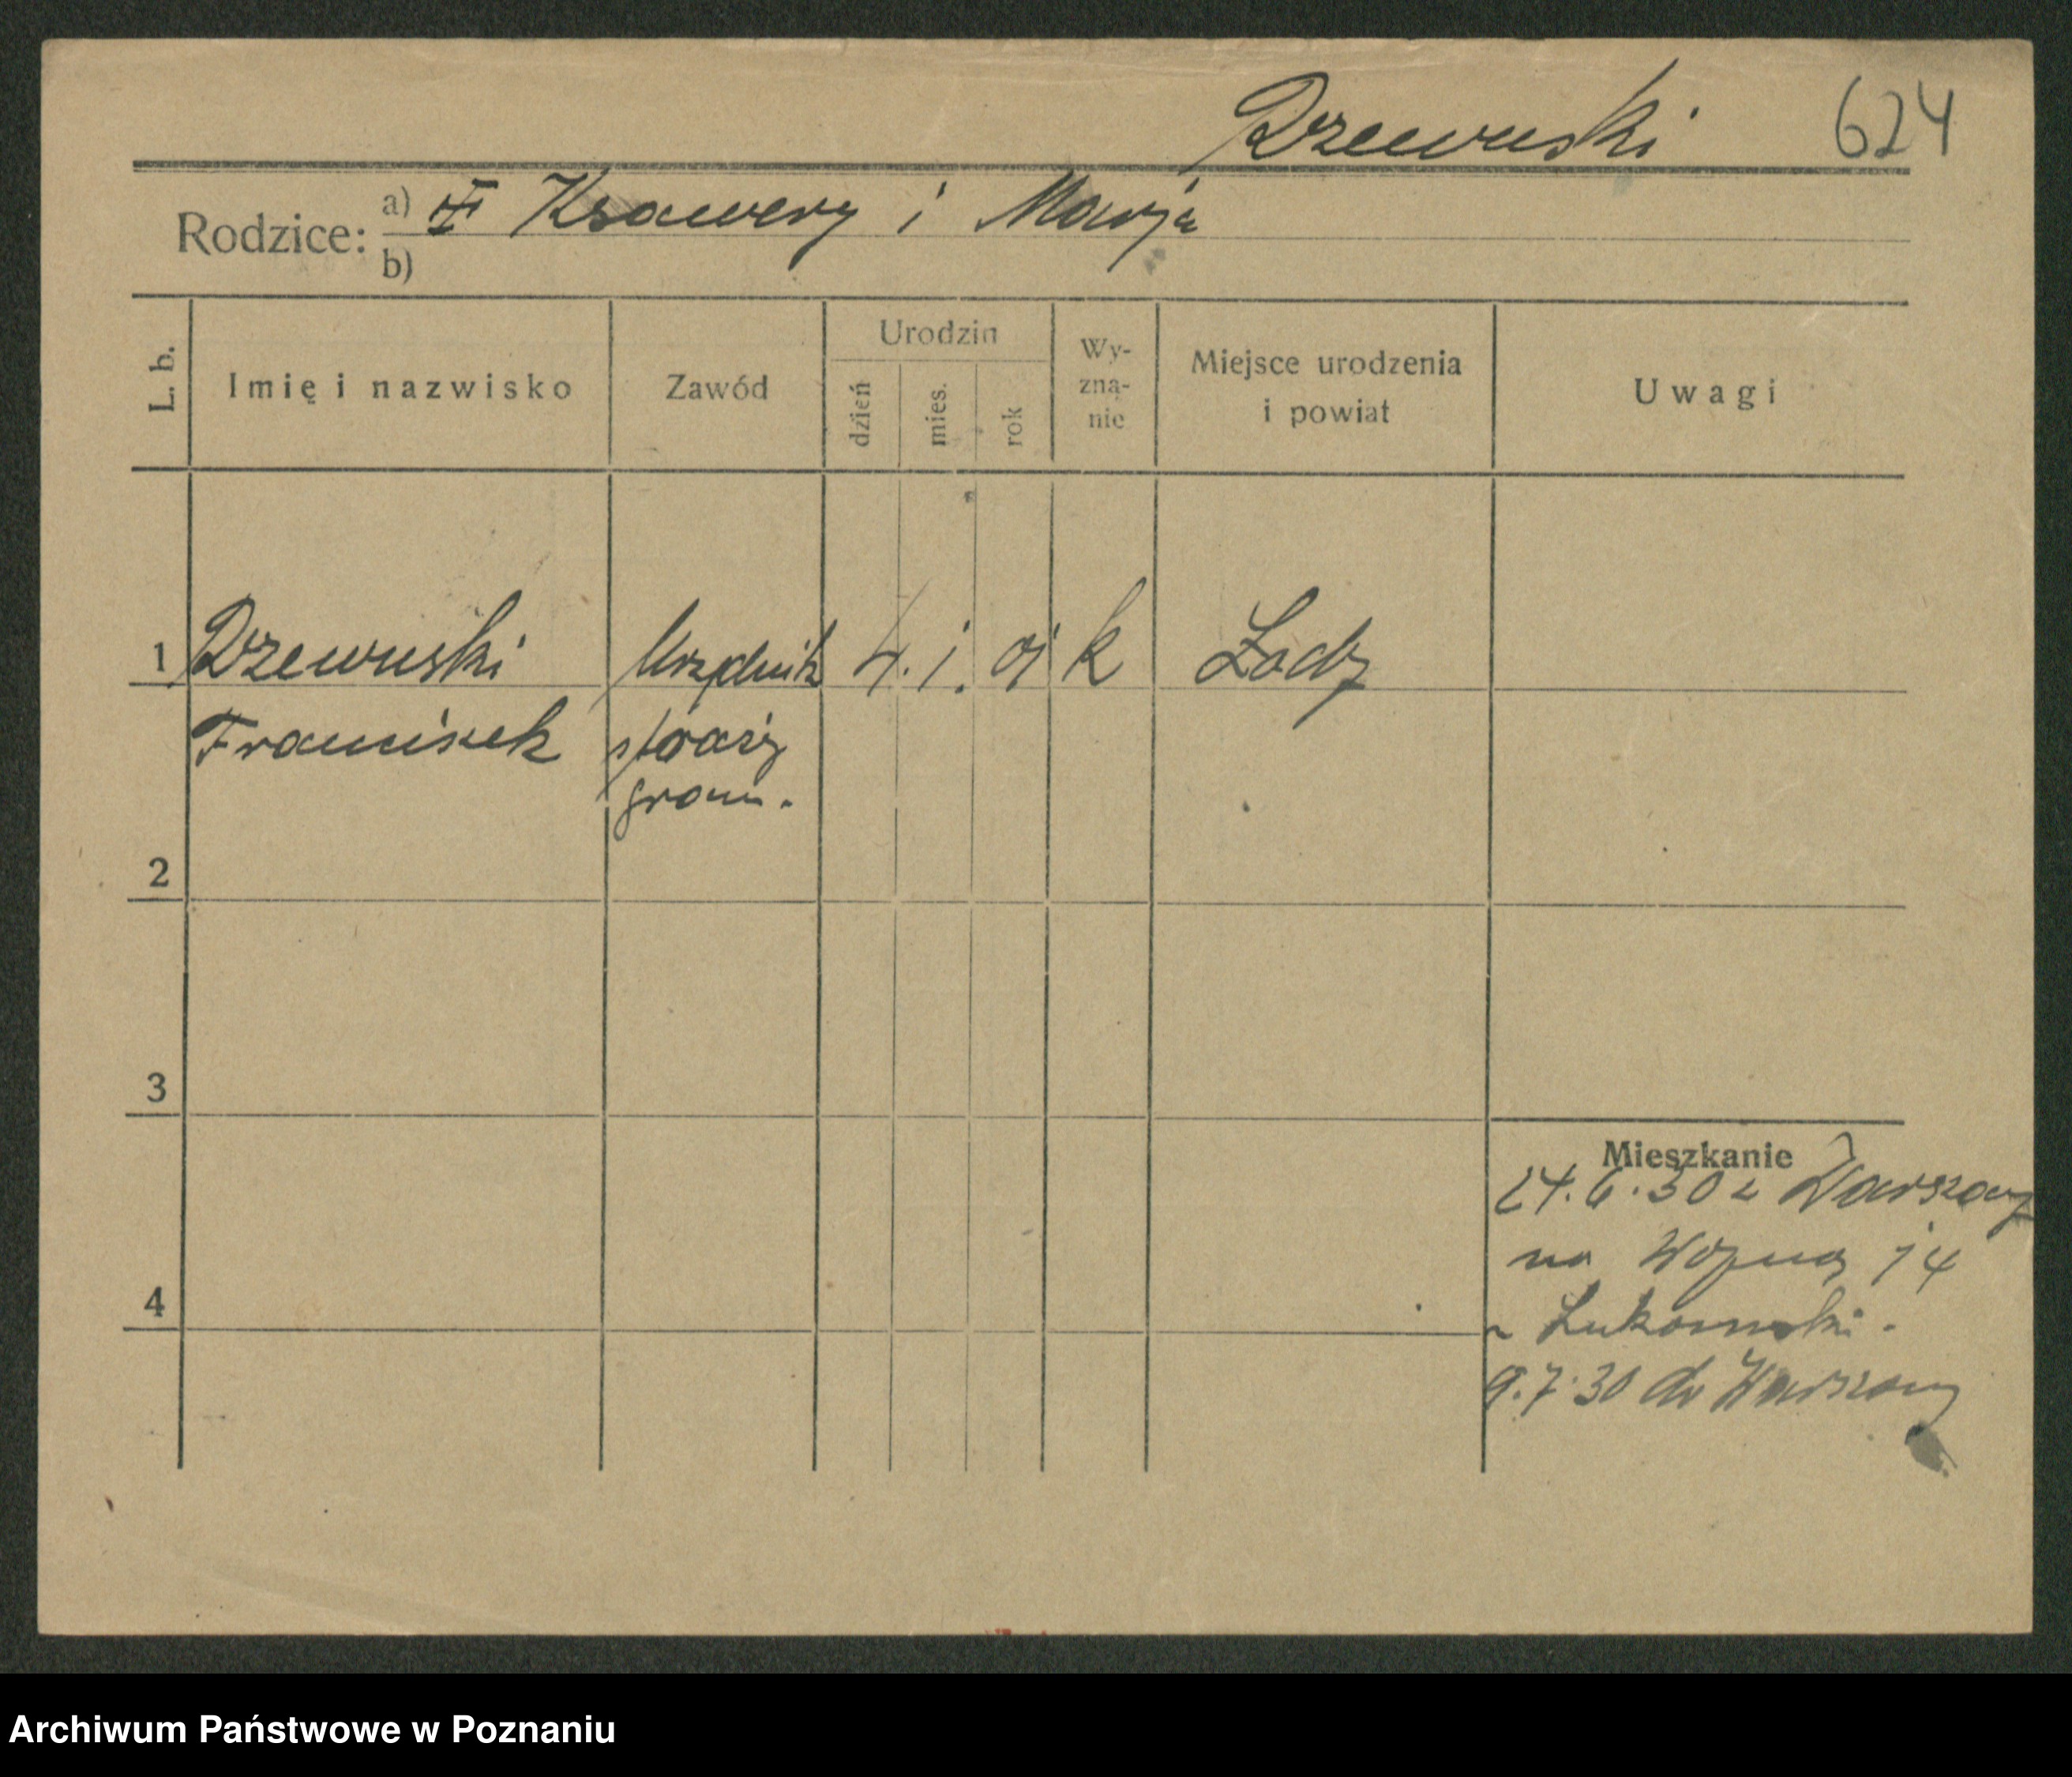 Drzewuski 624
Rodzice: a) Ksawery i Marja
b)
L. b. Imię i nazwisko Zawód Urodzin dzień mies. rok Wy-zna-nie Miejsce urodzenia i powiat Uwagi
1 Drzewuski Urzędnik 4. 1. 01 k Łódź
Franciszek straży
gran.
2
3
Mieszkanie
24.6.30 z Warszawy
na Wozną 14
4
Łukomski.
9.7.30 do Warszawy
Archiwum Państwowe w Poznaniu